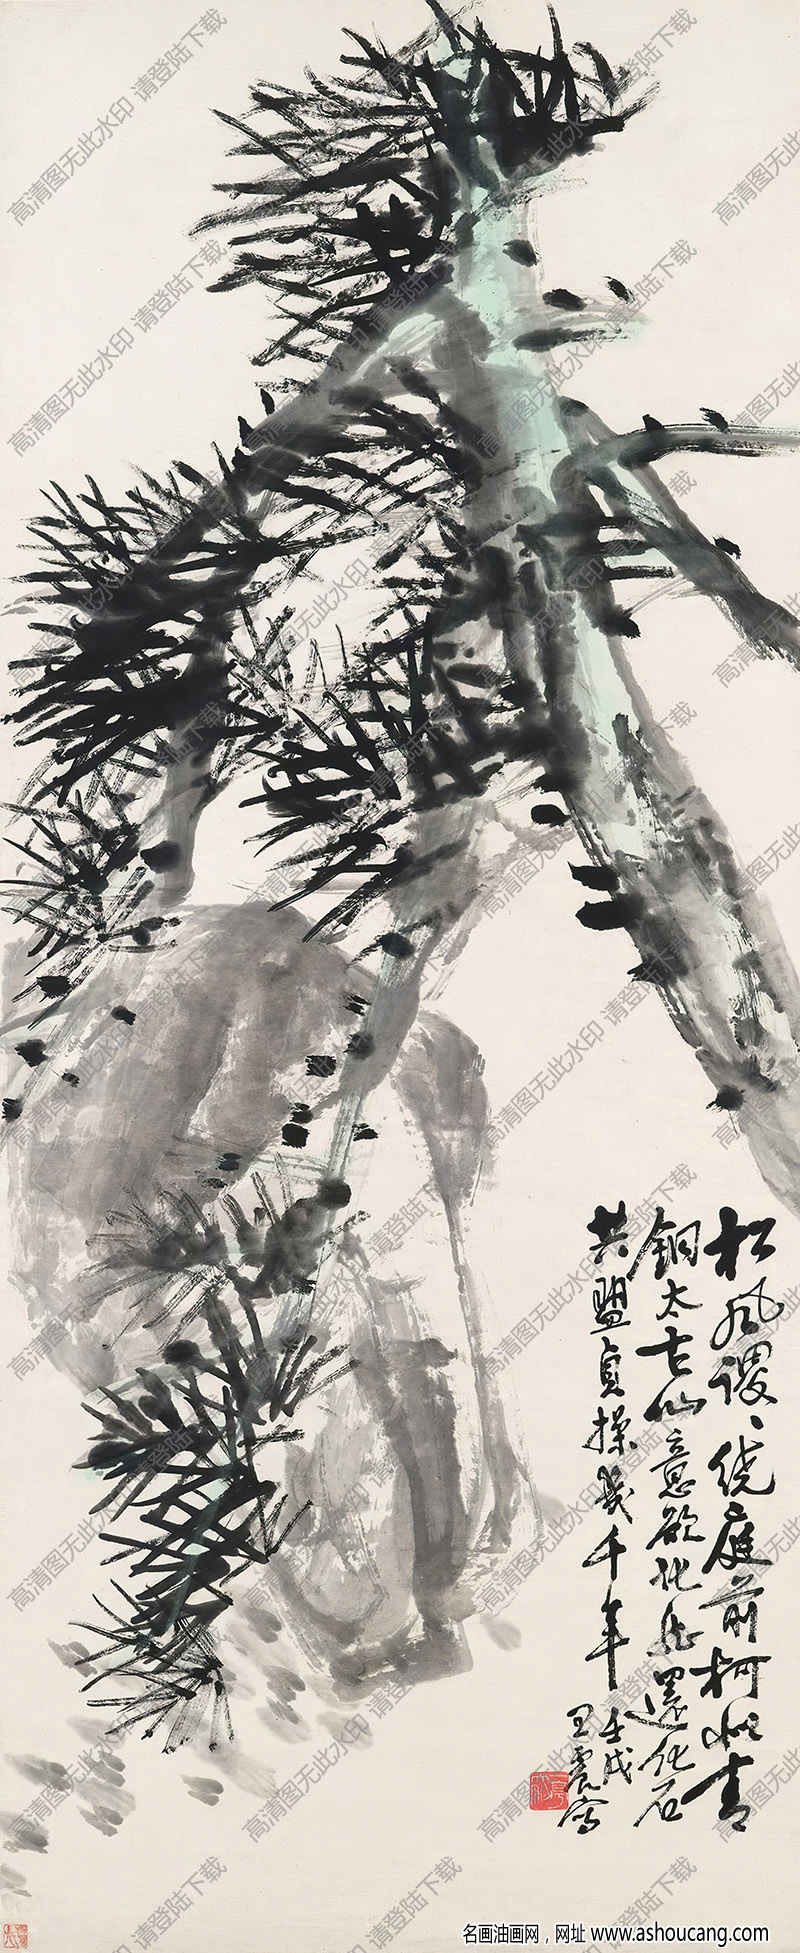 松风谡〻绕庭前柯似青
铜太古仙意欲化龙还化石
共盟贞操几千年
壬戌
王震写
高清图无此水印 请登陆下载
名画油画网，网址 www.ashoucang.com